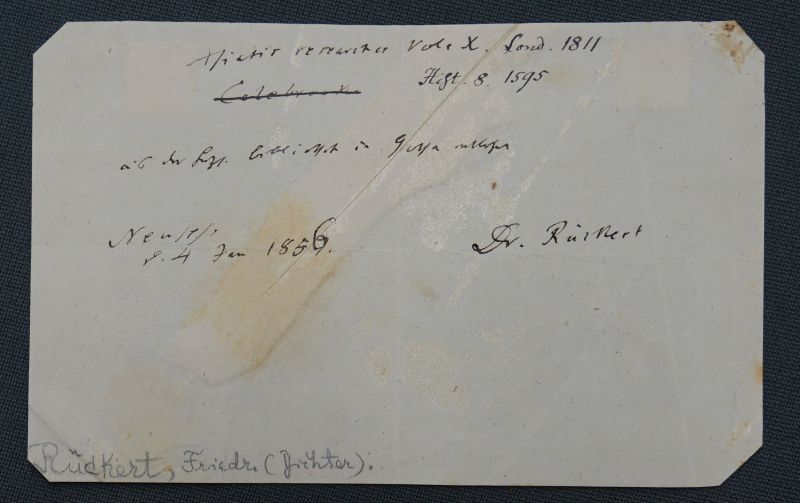 Asiatic researches Vol. X. Lond. 1811
Colebrooke
Hist. 8. 1595
aus der Herz. bibliothek in Gotha entliehen
Neuseß.
d. 4 Jan 1856.
Dr. Rückert
Rückert, Friedr. (Dichter).